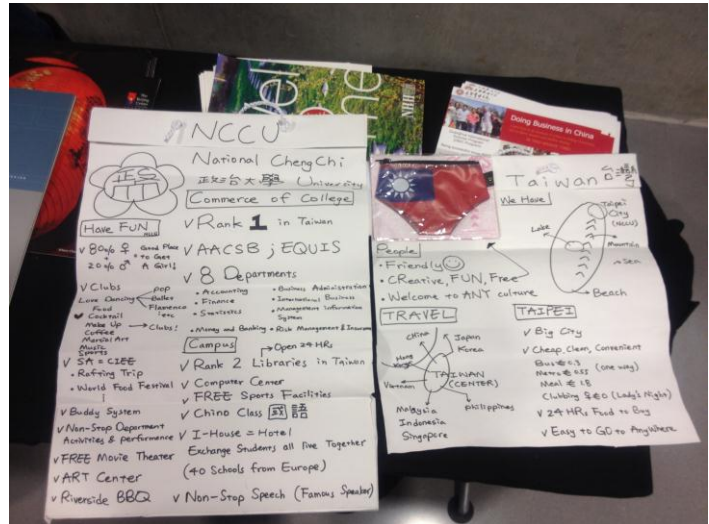 NCCU
政
National ChengChi
政治大學 University
Commerce of College
Have FUN
✓ 80% ♀ Good Place
+ to Get
20% ♂ A Girl!
✓ Clubs
Love Dancing
Pop
Ballet
Flamenco
etc
Food
Cocktail
Make Up
Coffee → Clubs!
Martial Art
Music
Sports
✓ SA = CIEE
• Rafting Trip
• World Food Festival
✓ Buddy System
✓ Non-Stop Department
Activities & performance
✓ FREE Movie Theater
✓ ART Center
✓ Riverside BBQ
✓ Rank 1 in Taiwan
✓ AACSB ; EQUIS
✓ 8 Departments
• Accounting
• Finance
• Statistics
• Money and Banking
• Business Administration
• International Business
• Management Information
System
• Risk Management & Insurance
Campus
→ Open 24 HRs
✓ Rank 2 Libraries in Taiwan
✓ Computer Center
✓ FREE Sports Facilities
✓ Chino Class 國語
✓ I-House = Hotel
Exchange Students all live Together
(40 Schools from Europe)
✓ Non-Stop Speech (Famous Speaker)
Taiwan 台灣
We Have
Taipei
City
(NCCU)
Lake
Mountain
Sea
Beach
People
• Friendly
• CReative, FUN, Free
• Welcome to ANY culture
TRAVEL
China
Japan
Korea
Hong
Kong
Vietnam
TAIWAN
(CENTER)
Malaysia
Indonesia
Singapore
philippines
TAIPEI
✓ Big City
✓ Cheap, Clean, Convenient
Bus € 0.3
Metro € 0.55 (one way)
Meal € 1.8
Clubbing ♀ € 0 (Lady's Night)
✓ 24 HRs Food to Buy
✓ Easy to GO to Anywhere
Doing Business in China
NHH